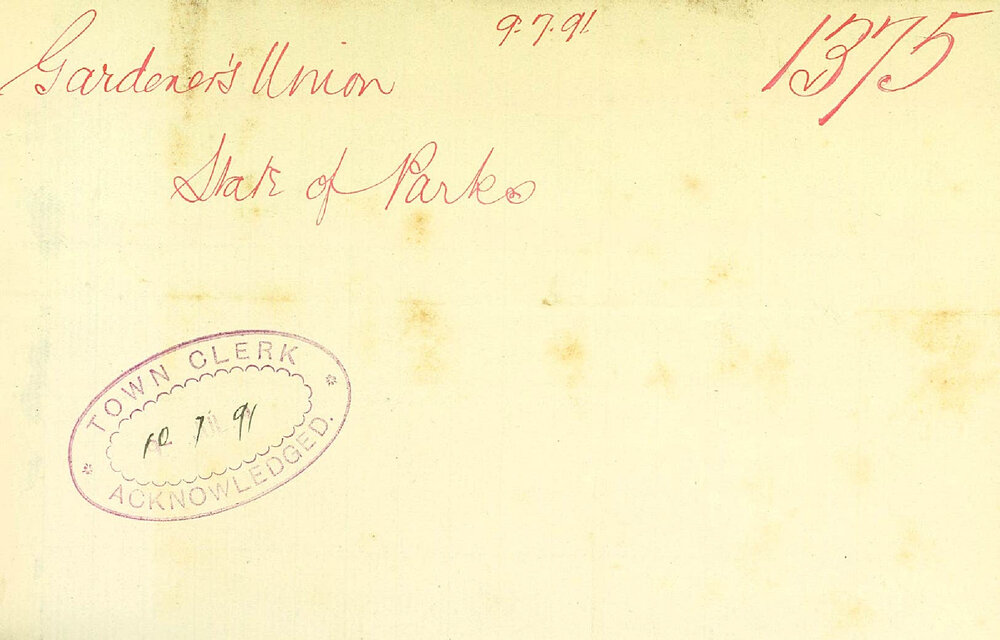 9.7.91
1375
Gardener's Union
State of Parks
TOWN CLERK
10 7 91
ACKNOWLEDGED.